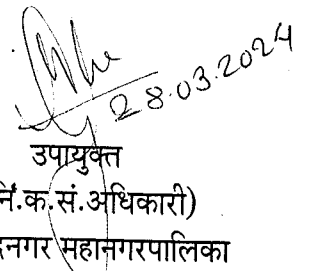 28.03.2024
उपायुक्त
नि.क.सं.अधिकारी)
महानगरपालिका